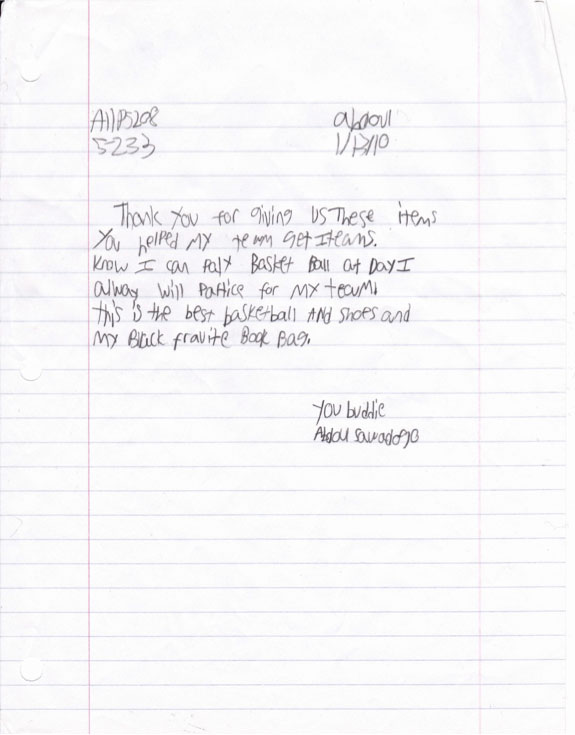 Abdoul
5-233
Thank You for giving US These items
You helped MY team Get Iteans.
Know I can Paly Basket Ball at Day I
alway Will Partice for MY team.
this is the best basketball AND shoes and
MY Black fravite Book Bag.
You buddie
Abdoul Sawadogo